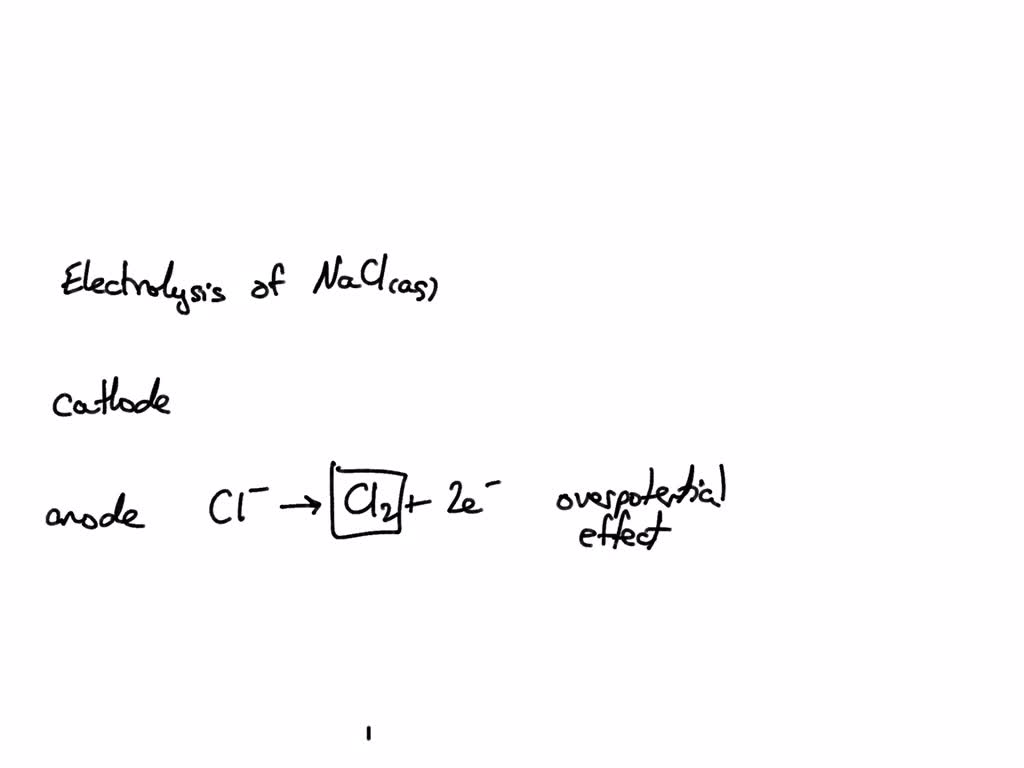 Electrolysis of NaCl(aq)
cathode
anode Cl⁻ → Cl₂ + 2e⁻ overpotential
effect